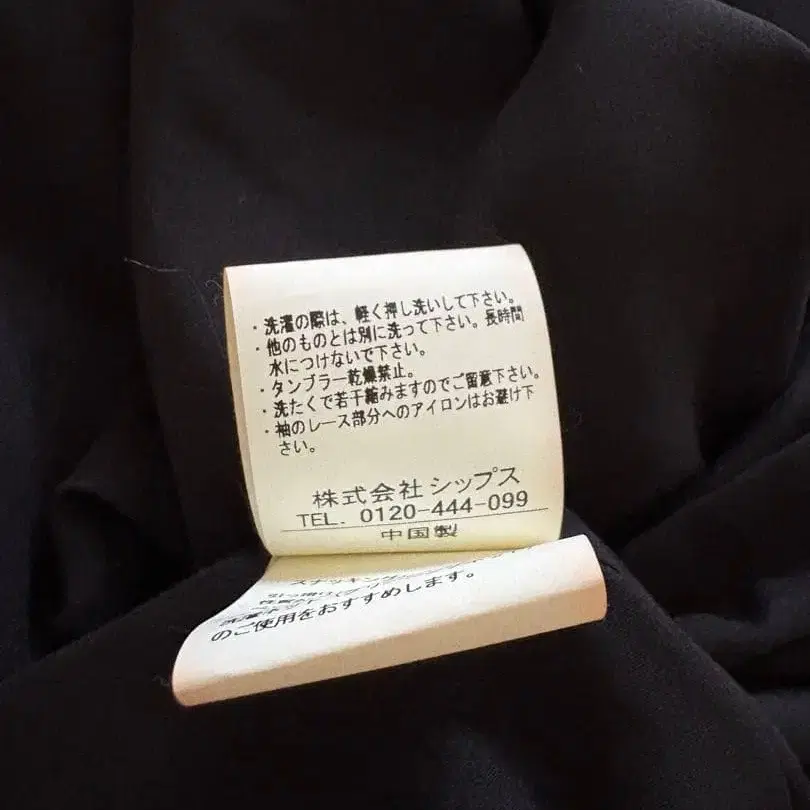 ・洗濯の際は、軽く押し洗いして下さい。
・他のものとは別に洗って下さい。長時間
水につけないで下さい。
・タンブラー乾燥禁止。
・洗たくで若干縮みますのでご留意下さい。
・袖のレース部分へのアイロンはお避け下
さい。
株式会社 シップス
TEL. 0120-444-099
中国製
のご使用をおすすめします。